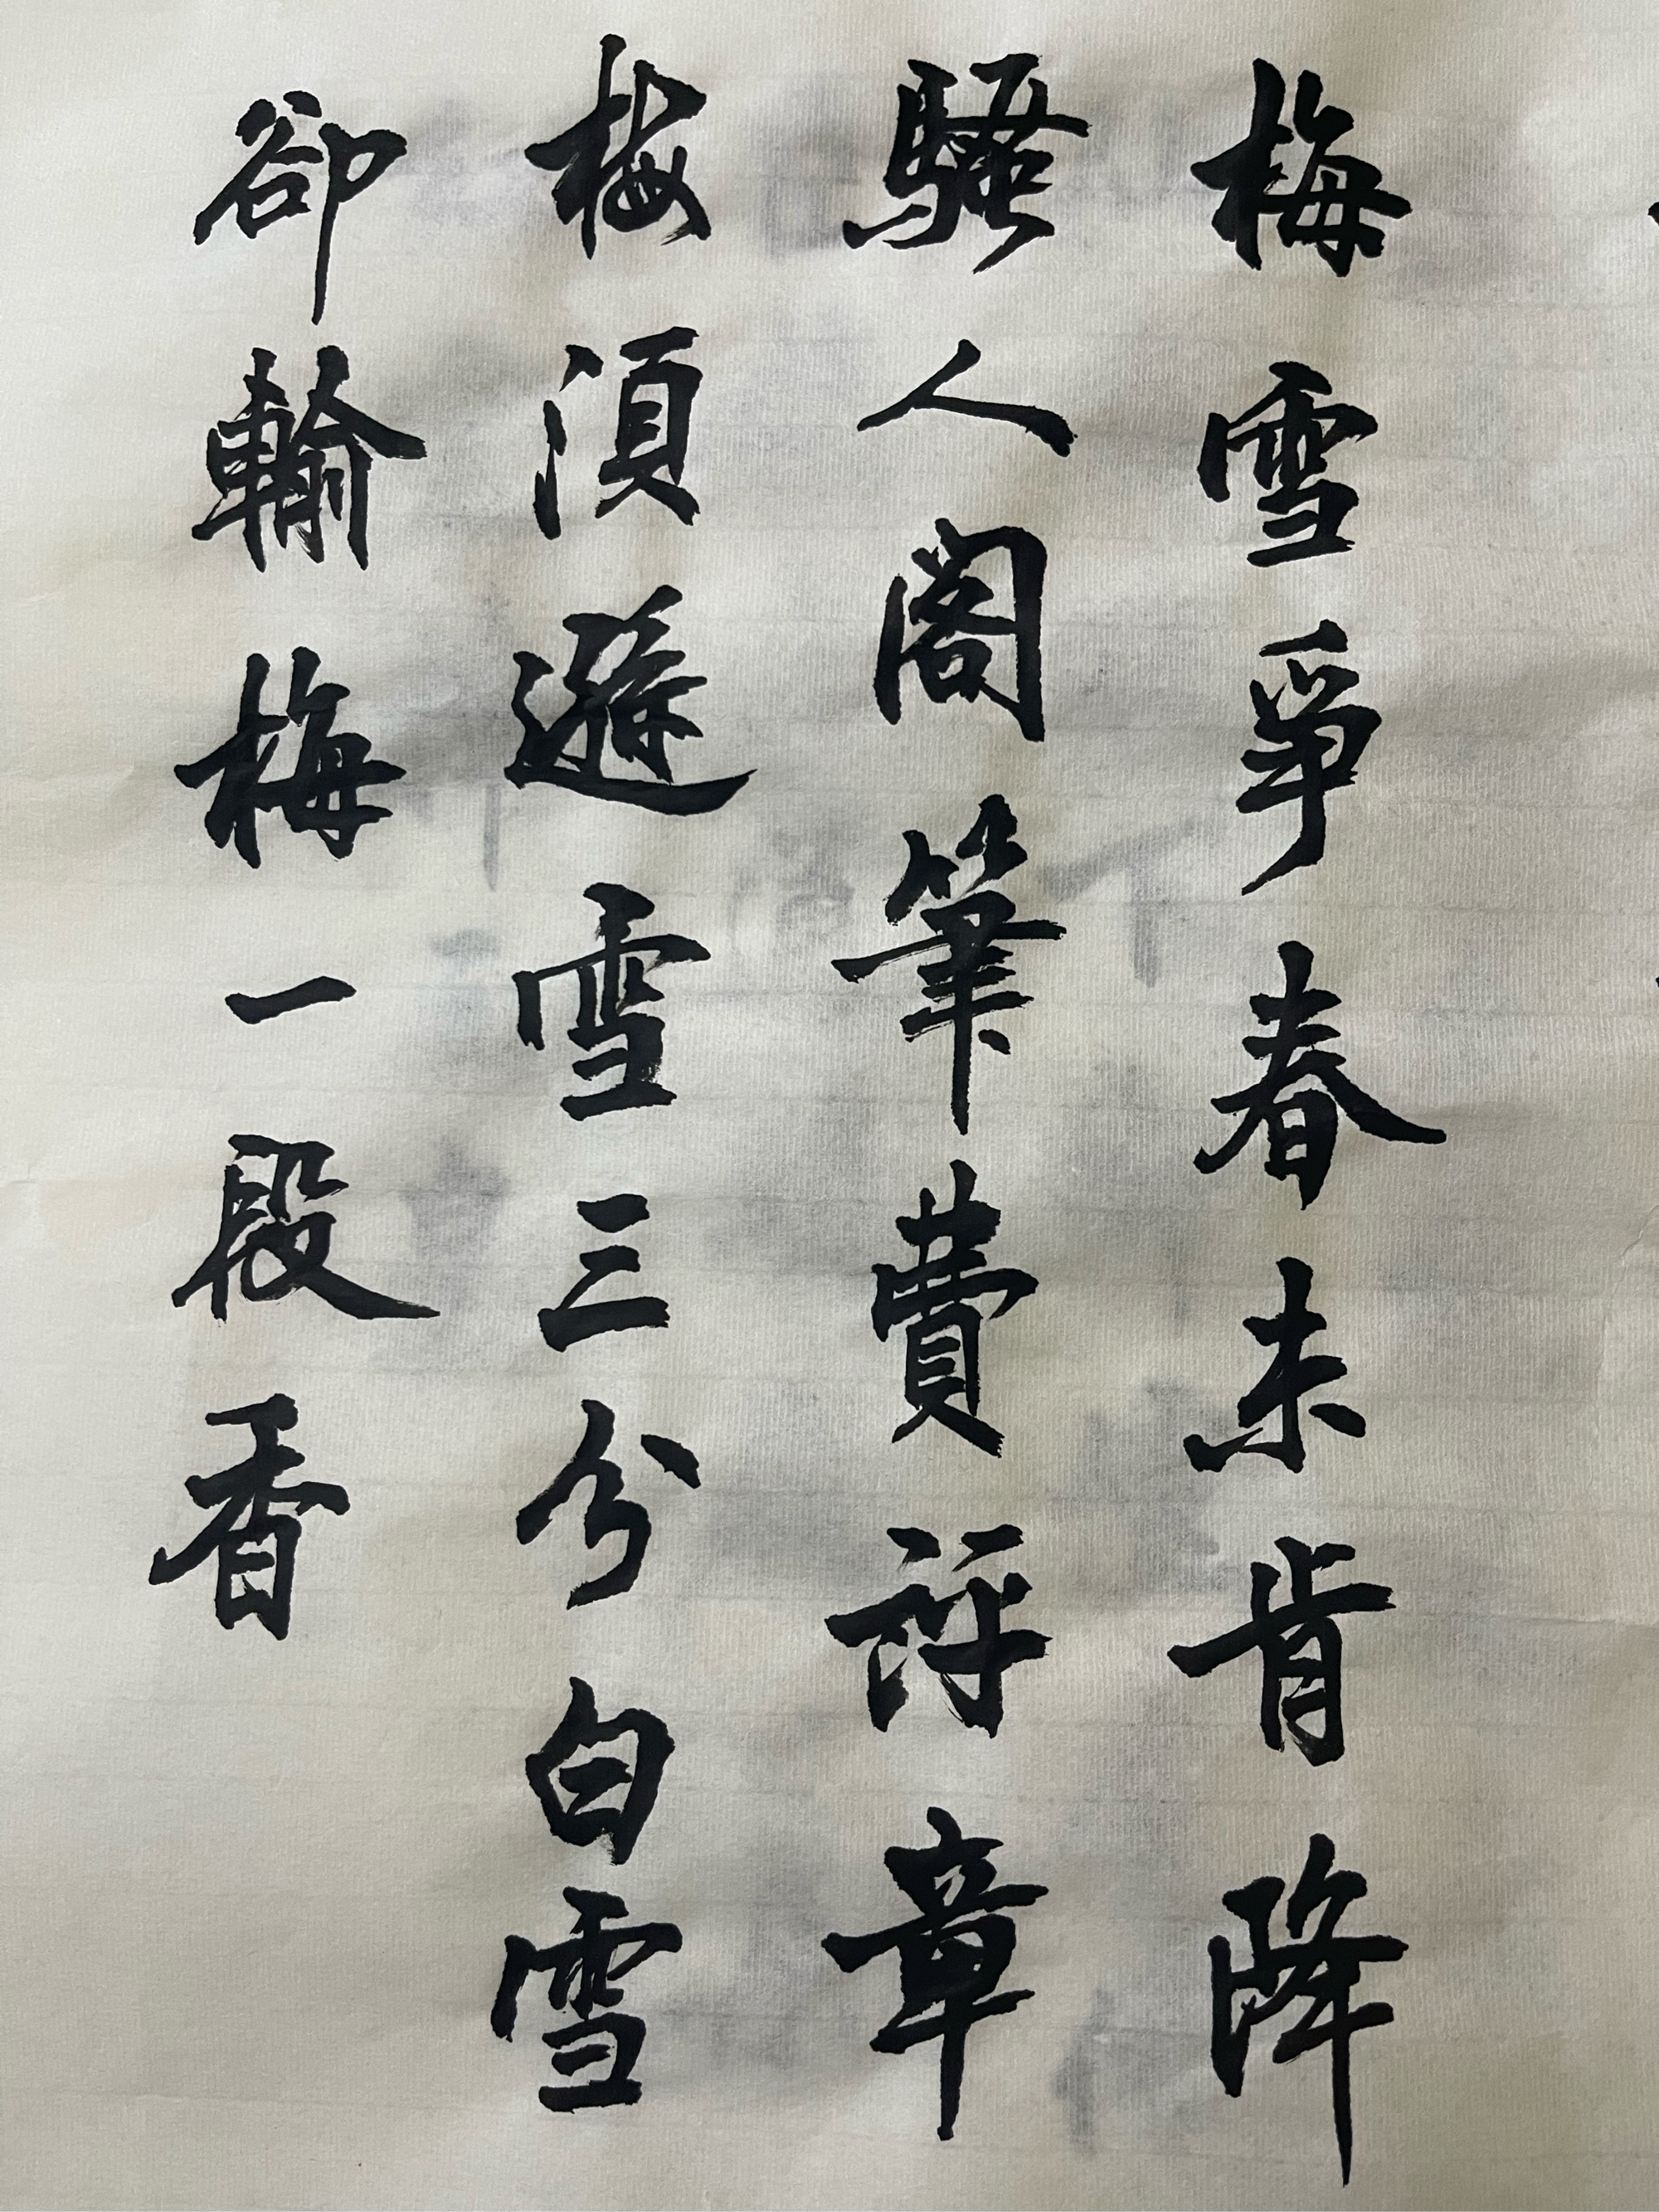 梅雪爭春未肯降
騷人閣筆費評章
梅須遜雪三分白雪
卻輸梅一段香